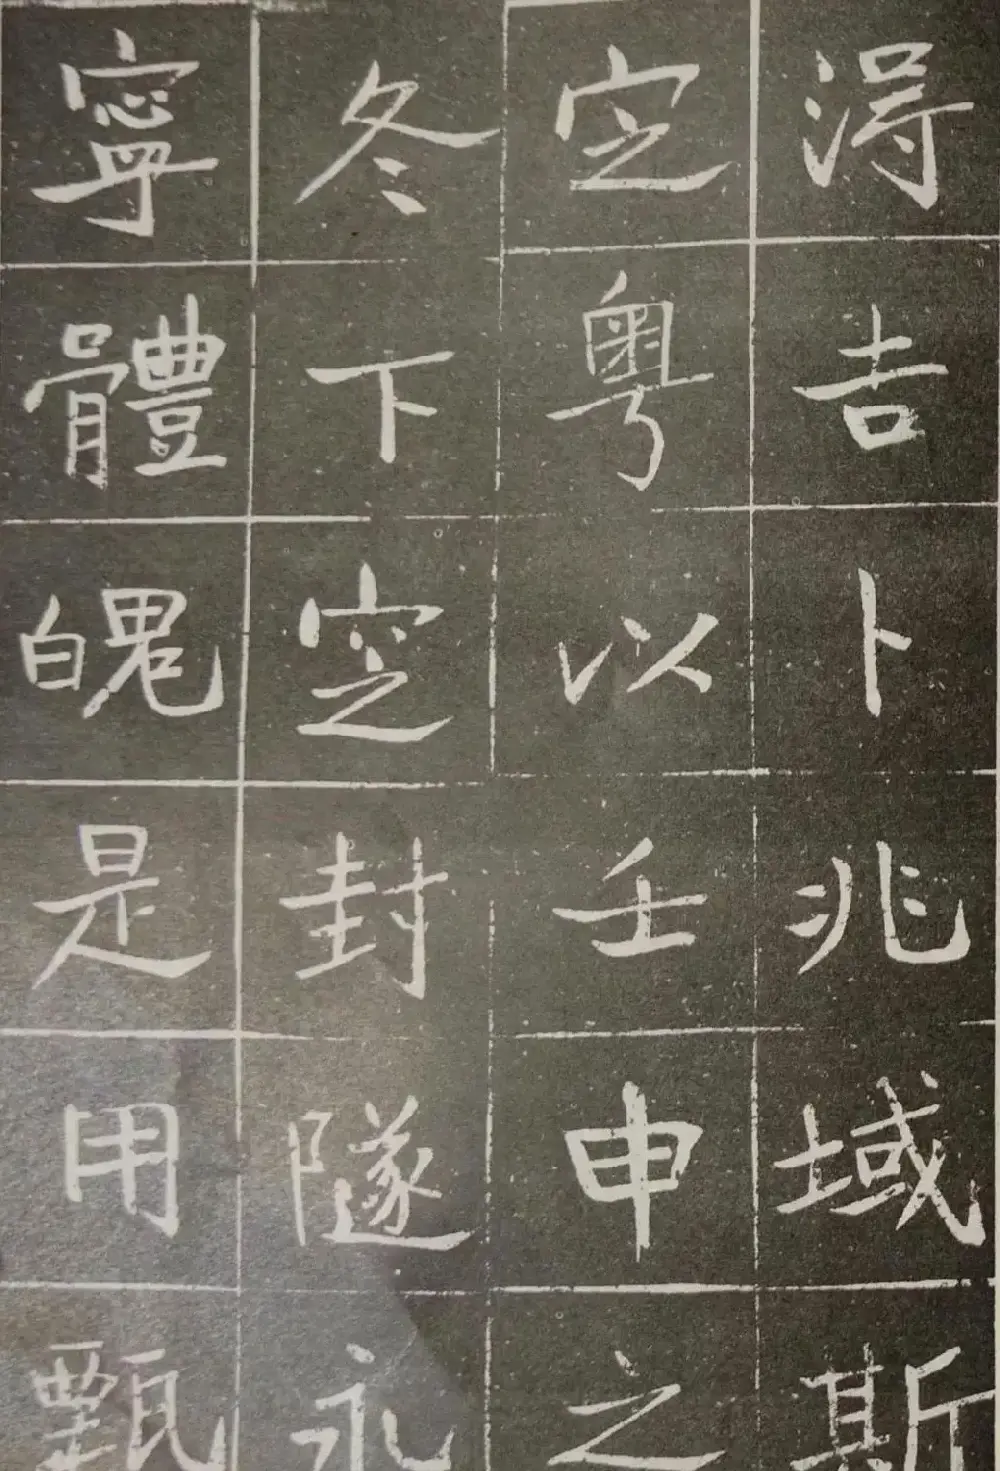 淂吉卜兆域斯
定粤以壬申之
冬下窆封隧永
寧體魄是用甄